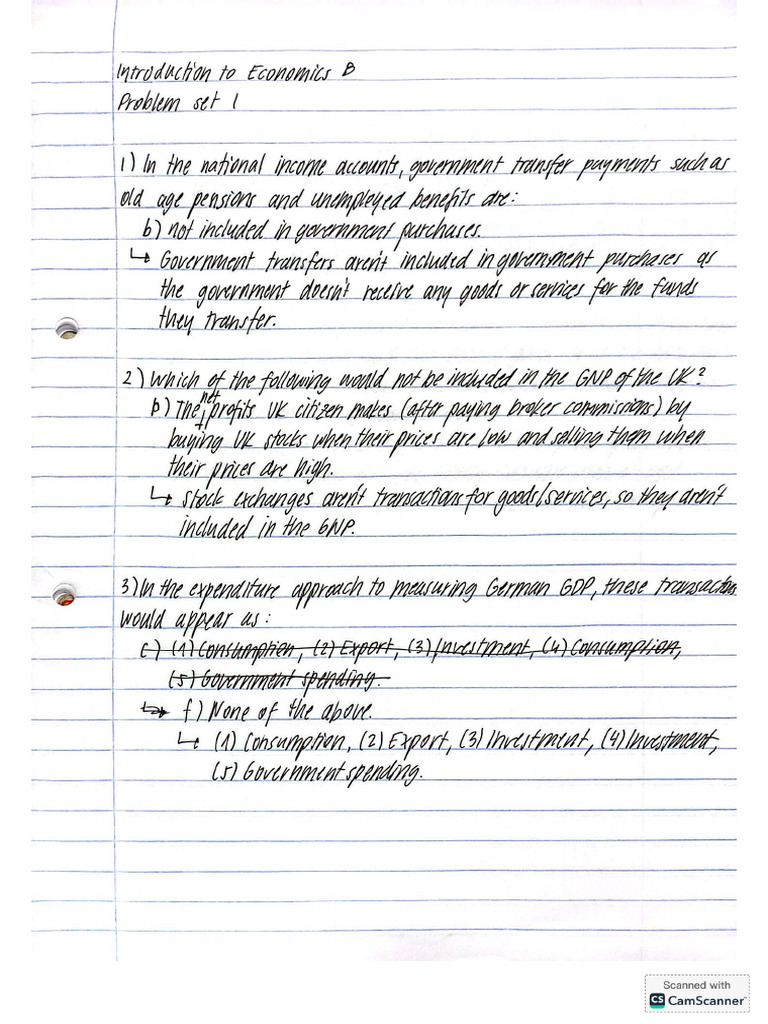 Introduction to Economics B
Problem set 1
1) In the national income accounts, government transfer payments such as
old age pensions and unemployed benefits are:
b) not included in government purchases.
↳ Government transfers aren't included in government purchases as
the government doesn't receive any goods or services for the funds
they transfer.
2) Which of the following would not be included in the GNP of the UK?
b) The net profits UK citizen makes (after paying broker commissions) by
buying UK stocks when their prices are low and selling them when
their prices are high.
↳ Stock exchanges aren't transactions for goods/services, so they aren't
included in the GNP.
3) In the expenditure approach to measuring German GDP, these transactions
would appear as:
c) (1) Consumption, (2) Export, (3) Investment, (4) Consumption,
(5) Government spending.
f) None of the above.
↳ (1) Consumption, (2) Export, (3) Investment, (4) Investment,
(5) Government spending.
Scanned with
CS CamScanner